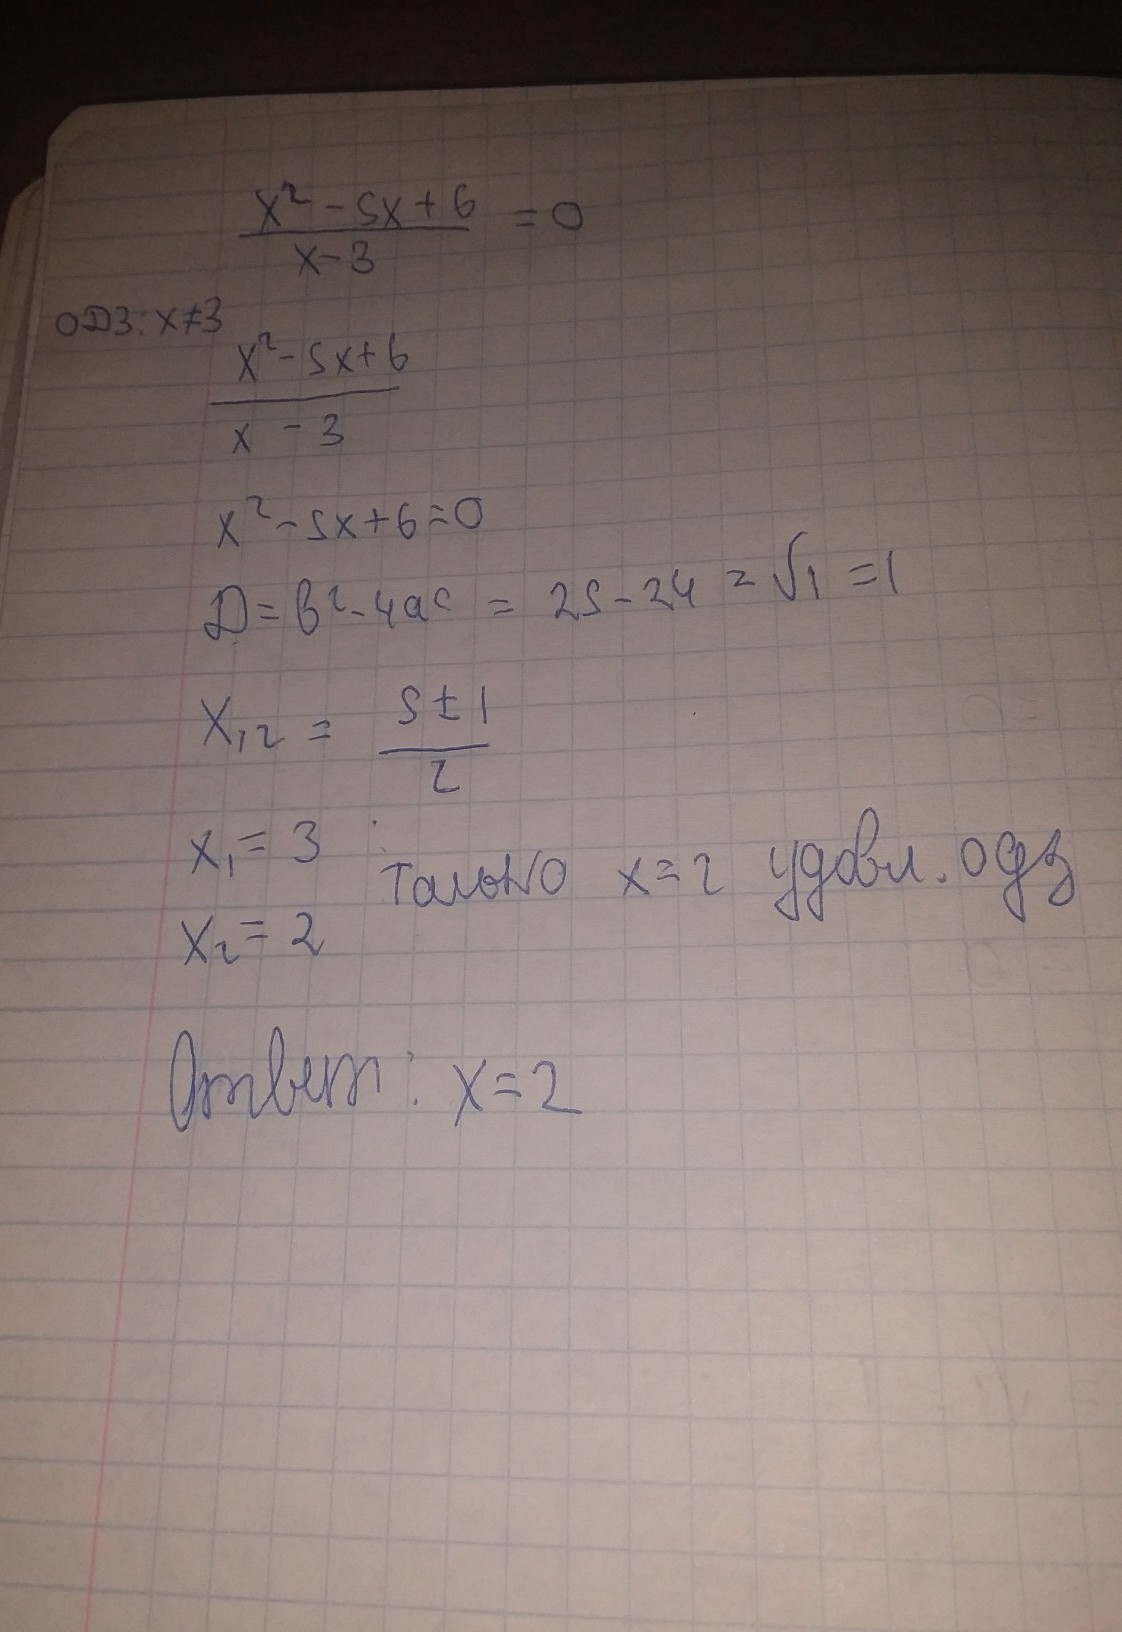 x² - 5x + 6 = 0
x - 3
ОДЗ: x ≠ 3
x² - 5x + 6
x - 3
x² - 5x + 6 = 0
Д = b² - 4ac = 25 - 24 = √1 = 1
x₁,₂ = 5 ± 1
2
x₁ = 3
только x = 2 удовл. одз
x₂ = 2
Ответ: x = 2